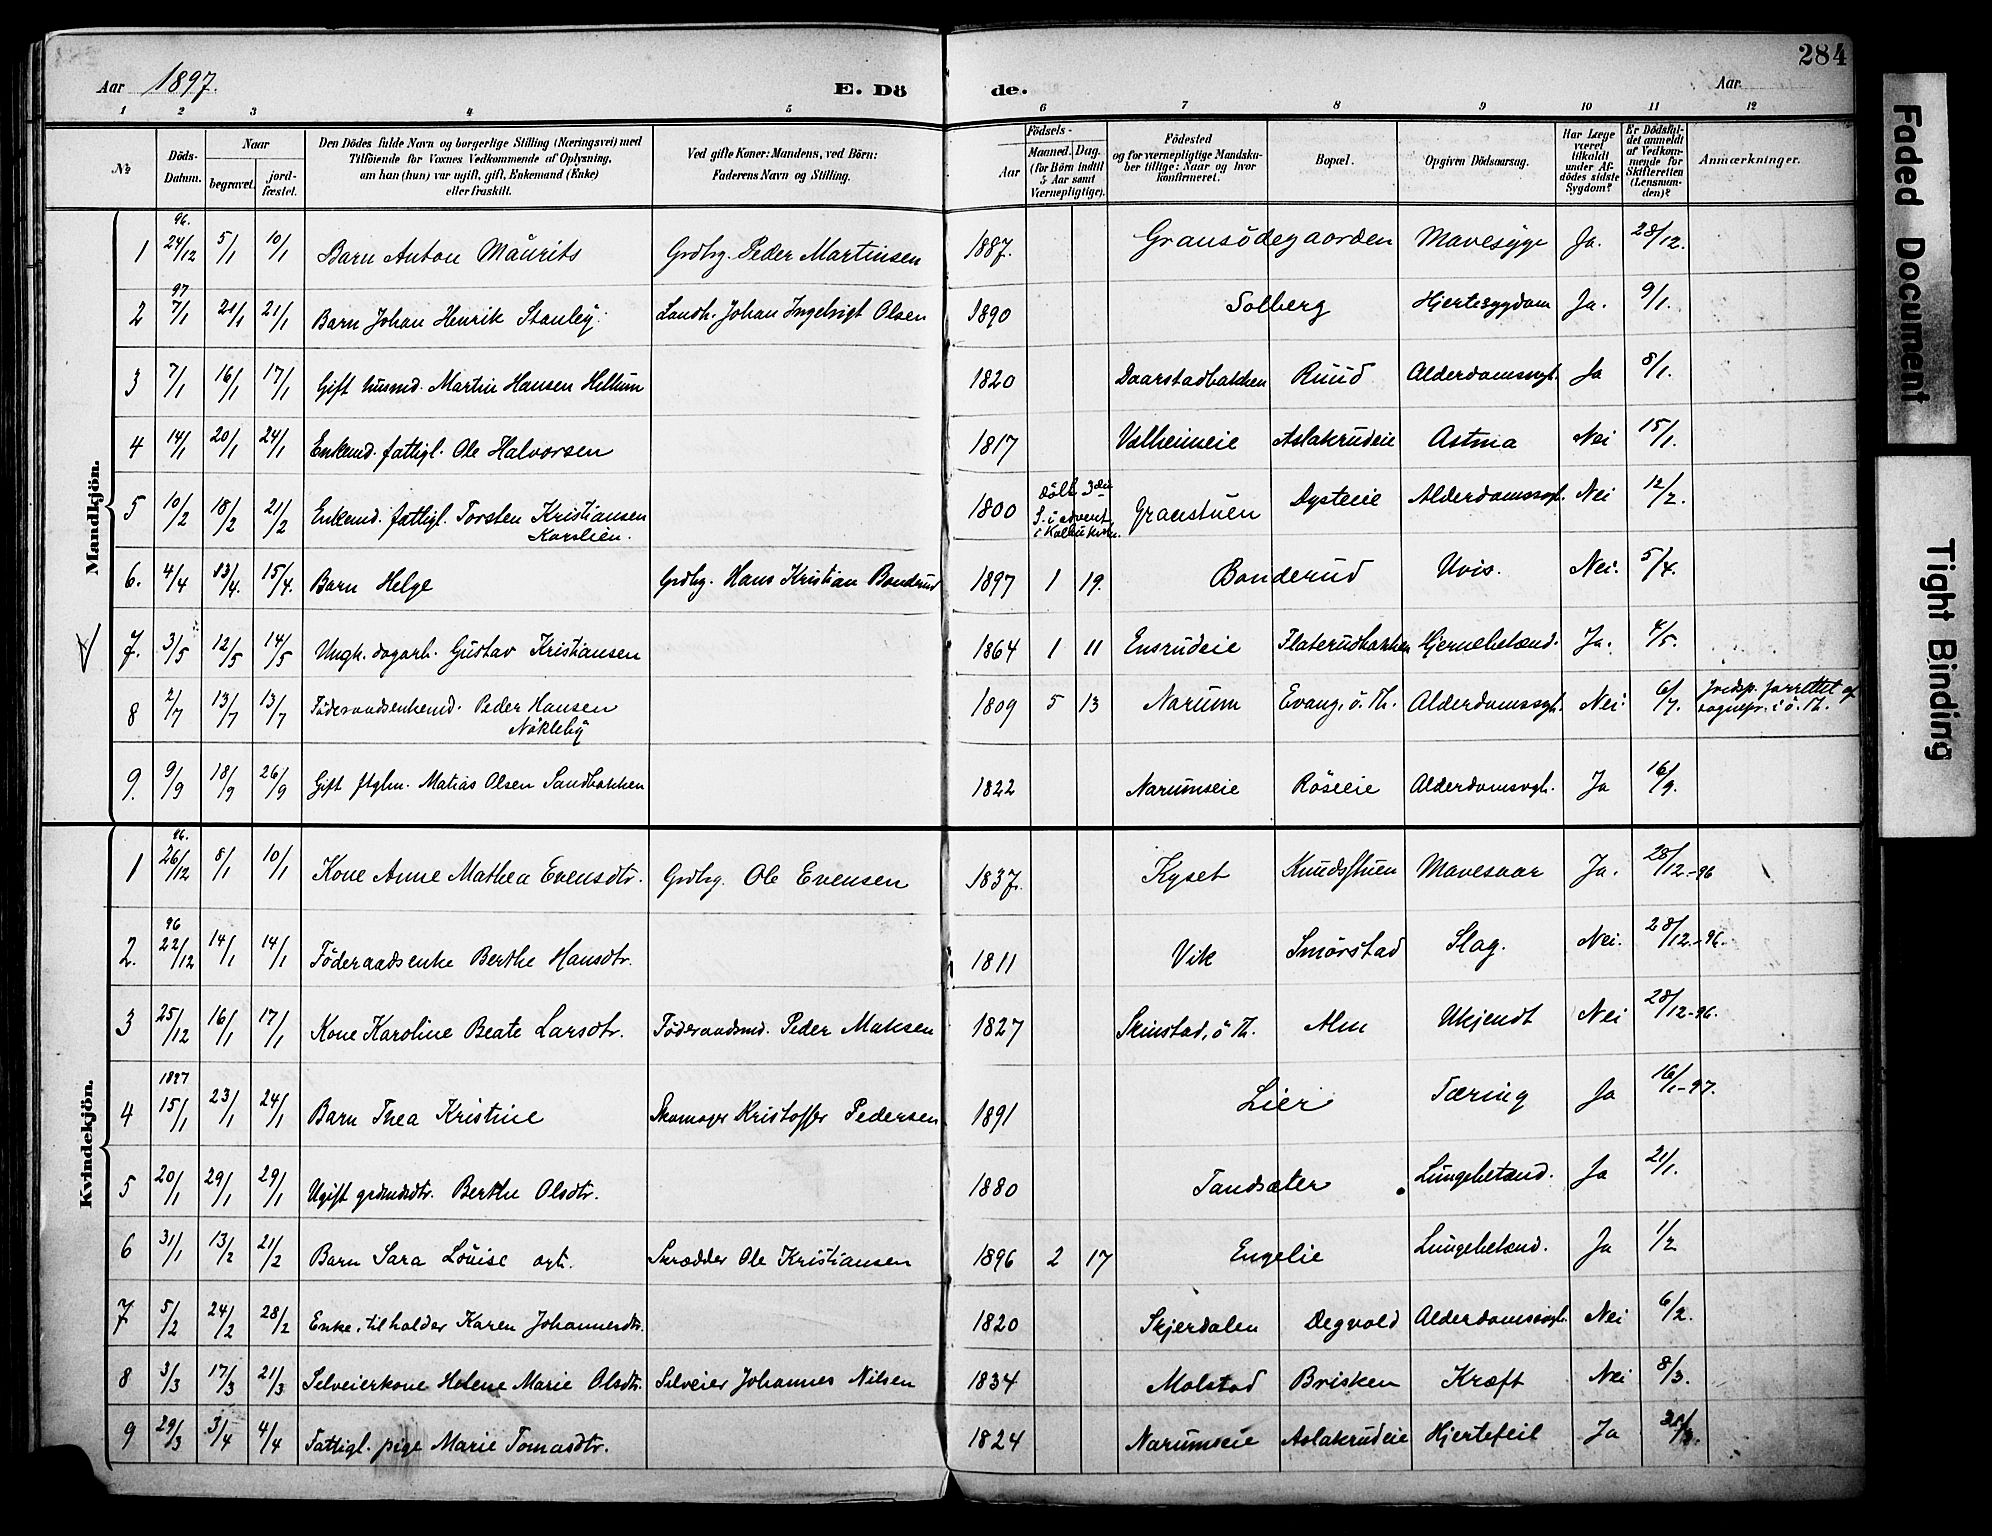 284
Aar 1897.
E. Dö
de.
Aar
1 2 3 4 5 6 7 8 9 10 11 12
№
Döds-Datum.
Naar
begravet.
jord-fæstet.
Den Dödes fulde Navn og borgerlige Stilling (Næringsvei) med
Tilföiende for Voxnes Vedkommende af Oplysning,
om han (hun) var ugift, gift, Enkemand (Enke)
eller fraskilt.
Ved gifte Koner: Mandens, ved Börn:
Faderens Navn og Stilling.
Födsels-
Aar
Maaned. Dag.
(for Börn indtil 5 Aar samt Værnepligtige).
Födested
og for værnepligtige Mandska-
ber tillige: Naar og hvor
konfirmeret.
Bopæl.
Opgiven Dödsaarsag.
Har Læge været tilkaldt under Af-dödes sidste Sygdom?
Er Dödsfal-det anmeldt af Vedkom-mende for Skifteretten (Lensman-den)?
Anmærkninger.
Mandkjön.
96.
1 24/12 5/1 10/1 Barn Anton Maurits Grdbrg. Peder Martinsen 1887. Gransödegaarden Mavesyge Ja. 28/12.
97
2 7/1 21/1 21/1 Barn Johan Henrik Stanley. Landh. Johan Ingebrigt Olsen 1890 Solberg Hjertesygdom Ja. 9/1.
3 7/1 16/1 17/1 Gift husmd. Martin Hansen Hellum 1820 Daarstadbakken Ruud Alderdomssvgh. Ja 8/1.
4 14/1 20/1 24/1 Enkemd. fattigl. Ole Halvorsen 1817 Valheimeie Aslakrudeie Astma Nei 15/1.
5 10/2 18/2 21/2 Enkemd. fattigl. Torsten Kristiansen Karslien. 1800 döbt 3die S. i advent i Kolbu kirke. Granstuen Dysteeie Alderdomssvgh. Nei 12/2.
6. 4/4 13/4. 15/4. Barn Helge Grdbrg. Hans Kristian Bondrud 1897 1 19. Bonderud Uvis. Nei. 5/4.
7. 3/5 12/5 14/5 Ungk. dagarb. Gustav Kristiansen 1864 1 11 Ensrudeie Flaterudbakken Hjernebetænd. Ja. 4/5.
8 2/7 13/7 13/7 Föderaadsenkemd. Peder Hansen Nökleby 1809 5 13 Narum Evang, ö. Th. Alderdomssvgh. Nei. 6/7. Jordsp. forrettet af sognepr. i ö. Th.
9. 9/9 18/9 26/9 Gift ftglm. Matias Olsen Sandbakken 1822 Narumseie Röseeie Alderdomsvgh. Ja 16/9.
Kvindekjön.
96.
1 26/12 8/1 10/1 Kone Anne Mathea Evensdtr. Grdbrg. Ole Evensen 1837. Kyset Knudsstuen Mavesaar Ja. 28/12.-96
96
2. 22/12 14/1 14/1 Föderaadsenke Berthe Hansdtr. 1811 Vik Smörstad Slag. Nei. 28/12.-96.
3 25/12 16/1 17/1 Kone Karoline Beate Larsdtr. Föderaadsmd. Peder Maksen 1827 Skinstad, ö Th. Alm Ukjendt Nei 28/12-96.
1897
4 15/1 23/1 24/1 Barn Thea Kristine Skomager Kristoffer Pedersen 1891 Lier Tæring Ja 16/1-97.
5 20/1 29/1 29/1 Ugift grdmdsdtr. Berthe Olsdtr. 1880 Tandsæter Lungebetænd. Ja 21/1.
6 31/1 13/2 21/2 Barn Sara Louise Skrædder Ole Kristiansen 1896 2 17 Engelie Lungebetænd. Ja 1/2
7 5/2 24/2 28/2 Enke, tilholder Karen Johannesdtr. 1820 Skjerdalen Degvold Alderdomssvgh. Nei 6/2.
8 3/3 17/3 21/3 Selveierkone Helene Marie Olsdtr. Selveier Johannes Nilsen 1834 Molstad Brisken Kræft Nei 8/3.
9 29/3 3/4 4/4 Fattigl. pige Marie Tomasdtr. 1824 Narumseie Aslakrudeie Hjertefeil Ja 31/3.
Faded Document
Tight Binding